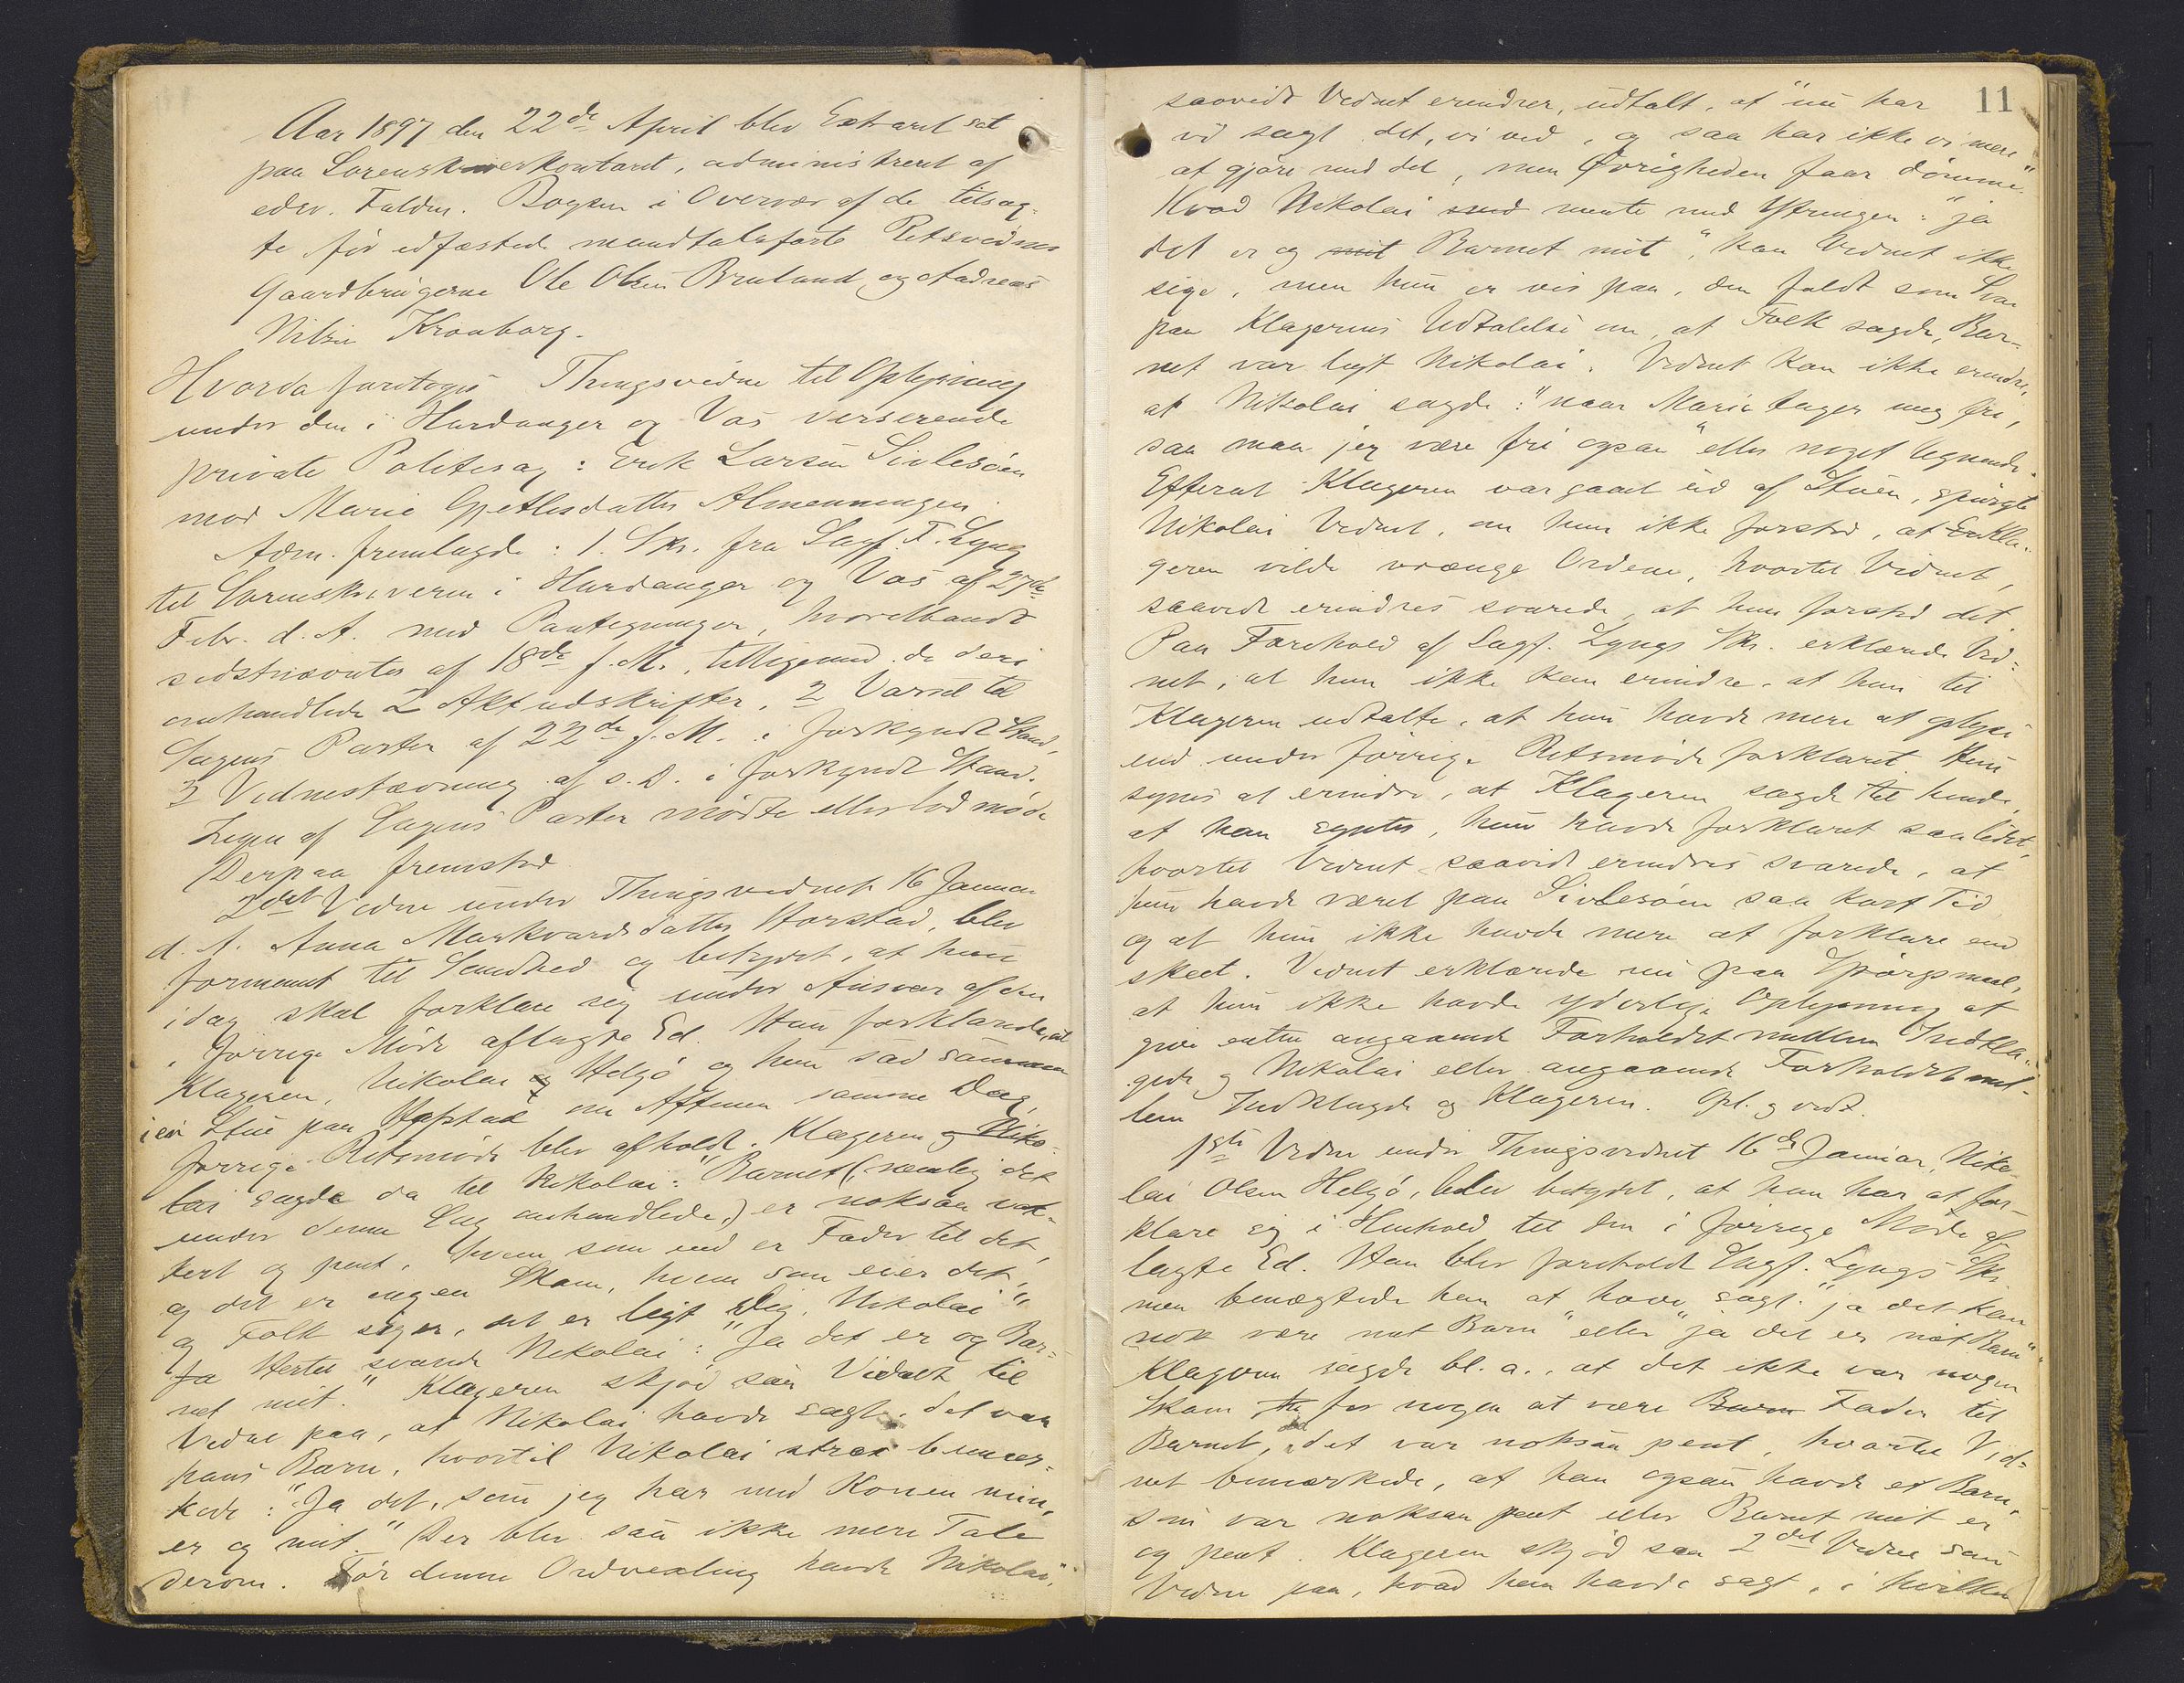 Aar 1897 den 22de April blev Extraret sat
paa Sorenskriverkontoret, administreret af
edsv. Fuldm. Boysen i Overvær af de tilsag-
te før edfæstede mandtalsførte Retsvidner
Gaardbrugerne Ole Olsen Bruland og Andreas
Nilsen Kronborg.
Hvorda foretoges Thingsvidne til Oplysning
under den i Hardanger og Vos verserende
private Politisag: Erik Larsen Sivlesøen
mod Marie Gjetlesdatter Almenningen.
Adm. fremlagde: 1. Skr. fra Sagf. F. Lyng
til Sorenskriveren i Hardanger og Vos af 27de
Febr. d. A. med Paategninger, hvoriblandt
sidstnævnte af 18de f. M., tilligemed de deri
omhandlede 2 Aktudskrifter, 2 Varsel til
Sagens Parter af 22de f. M. i forkyndt Stand,
3 Vidnestævning af s. D. i forkyndt Stand.
Ingen af Sagens Parter mødte eller lod møde
Derpaa fremstod
2det Vidne under Thingsvidnet 16 Januar
d. A. Anna Markvardsdatter Horstad, blev
formanet til Sandhed og betydet, at hun
idag skal forklare sig under Ansvar af den
i forrige Møde aflagte Ed. Hun forklarede, at
Klageren, Nikolai og Helgø og hun sad sammen
i en Stue paa Hopstad om Aftenen samme Dag,
forrige Retsmøde blev afholdt. Klageren og Niko-
lai sagde da til Nikolai: "Barnet (nemlig det
under denne Sag omhandlede) er noksaa vak-
kert og pent, hvem som end er Fader til det,
og det er ingen Skam, hvem som eier det,
og Folk siger, det er ligt Dig, Nikolai"
Ja Hertil svarede Nikolai: "Ja det er og Bar-
net mit." Klageren skjød saa Vidnet til
Vidne paa, at Nikolai havde sagt, det var
hans Barn, hvortil Nikolai strax bemær-
kede: "Ja det, som jeg har med Konen min,
er og mit." Der blev saa ikke mere Tale
derom. Før denne Ordvexling havde Nikolai,
11
saavidt Vidnet erindrer, udtalt, at "nu har
vi sagt det, vi ved, og saa har ikke vi mere
at gjøre med det, men Øvrigheden faar dømme."
Hvad Nikolai med mente med Ytringen: "ja
det er og mit Barnet mit", kan Vidnet ikke
sige, men hun er vis paa, den faldt som Svar
paa Klagerens Udtalelse om, at Folk sagde, Bar-
net var ligt Nikolai. Vidnet kan ikke erindre,
at Nikolai sagde: "naar Marie tager meg fri,
saa maa jeg være fri ogsaa" eller noget lignende.
Efterat Klageren var gaaet ud af Stuen, spurgte
Nikolai Vidnet, om hun ikke forstod, at Kla-
geren vilde vrænge Ordene, hvortil Vidnet,
saavidt erindres svarede, at hun forstod det
Paa Forehold af Sagf. Lyngs Skr. erklærede Vid-
net, at hun ikke kan erindre, at hun til
Klageren udtalte, at hun havde mere at oplyse
end under forrige Retsmøde forklaret Hun
synes at erindre, at Klageren sagde til hende,
at han syntes, hun havde forklaret saa lidet,
hvortil Vidnet saavidt erindres svarede, at
hun havde været paa Sivlesøen saa kort Tid
og at hun ikke havde mere at forklare end
skeet. Vidnet erklærede nu paa Spørgsmaal,
at hun ikke havde yderlige Oplysning at
give enten angaaende Forholdet mellem Indkla-
gede og Nikolai eller angaaende Forholdet mel-
lem Indklagede og Klageren. Opl. og vedt.
1ste Vidne under Thingsvidnet 16de Januar, Niko-
lai Olsen Helgø, blev betydet, at han har at for-
klare sig i Henhold til den i forrige Møde af-
lagte Ed. Han blev foreholdt Sagf. Lyngs Skr.
men benægtede han at have sagt: "ja det kan
nok være mit Barn" eller "ja det er mit Barn"
Klageren sagde bl. a., at det ikke var nogen
Skam for nogen at være Barn Fader til
Barnet, da det var noksaa pent, hvortil Vid-
net bemærkede, at han ogsaa havde et Barn,
som var noksaa pent eller Barnet mit er
og pent. Klageren skjød saa 2det Vidne som
Vidne paa, hvad han havde sagt, i hvilken